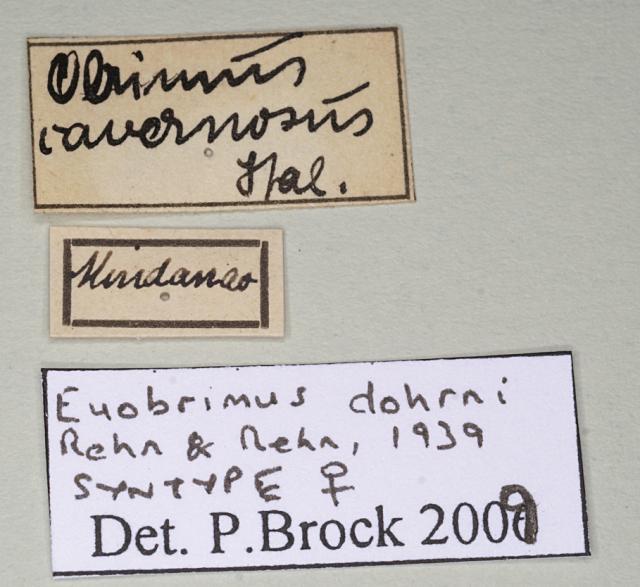 Obrimus
cavernosus
Stal.
Mindanao
Euobrimus dohrni
Rehn & Rehn, 1939
SYNTYPE ♀
Det. P.Brock 2009